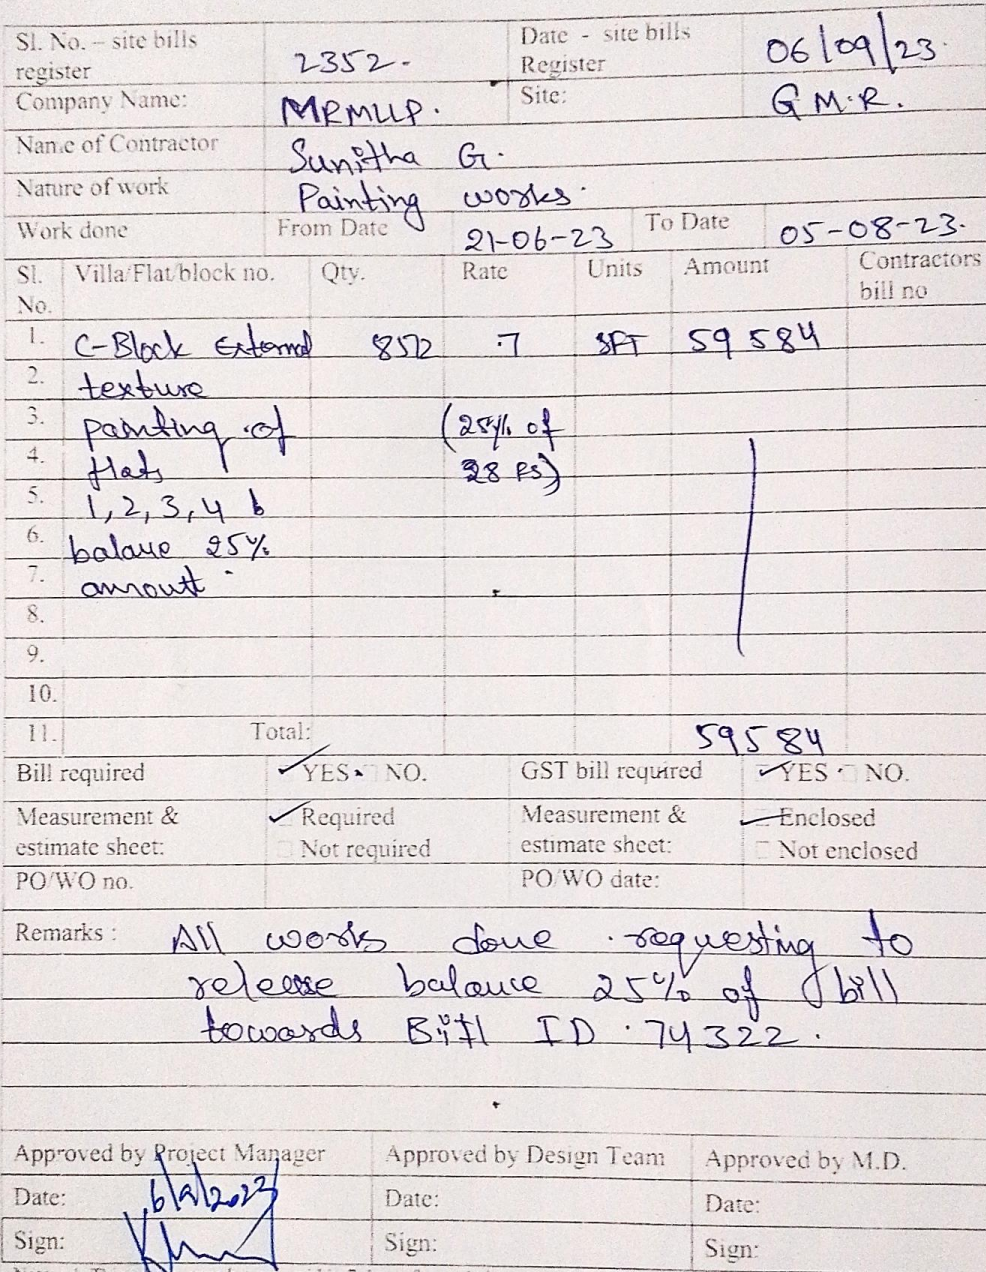 Sl. No. – site bills register 2352. Date - site bills Register 06/09/23.
Company Name: MRMLLP. Site: G M.R.
Name of Contractor Sunitha G.
Nature of work Painting works.
Work done From Date 21-06-23 To Date 05-08-23.
Sl. No. Villa/Flat/block no. Qty. Rate Units Amount Contractors bill no
1. C-Block External 8512 7 SFT 59584
2. texture
3. painting of (25% of
4. flats 28 Rs)
5. 1,2,3,4 b
6. balaue 25%
7. amoutt
8.
9.
10.
11. Total: 59584
Bill required YES NO. GST bill required YES NO.
Measurement & Required Measurement & Enclosed
estimate sheet: Not required estimate sheet: Not enclosed
PO/WO no. PO/WO date:
Remarks : All works done requesting to
release balance 25% of bill
towards Bill ID 74322.
Approved by Project Manager Approved by Design Team Approved by M.D.
Date: 6/9/2023 Date: Date:
Sign: Sign: Sign: